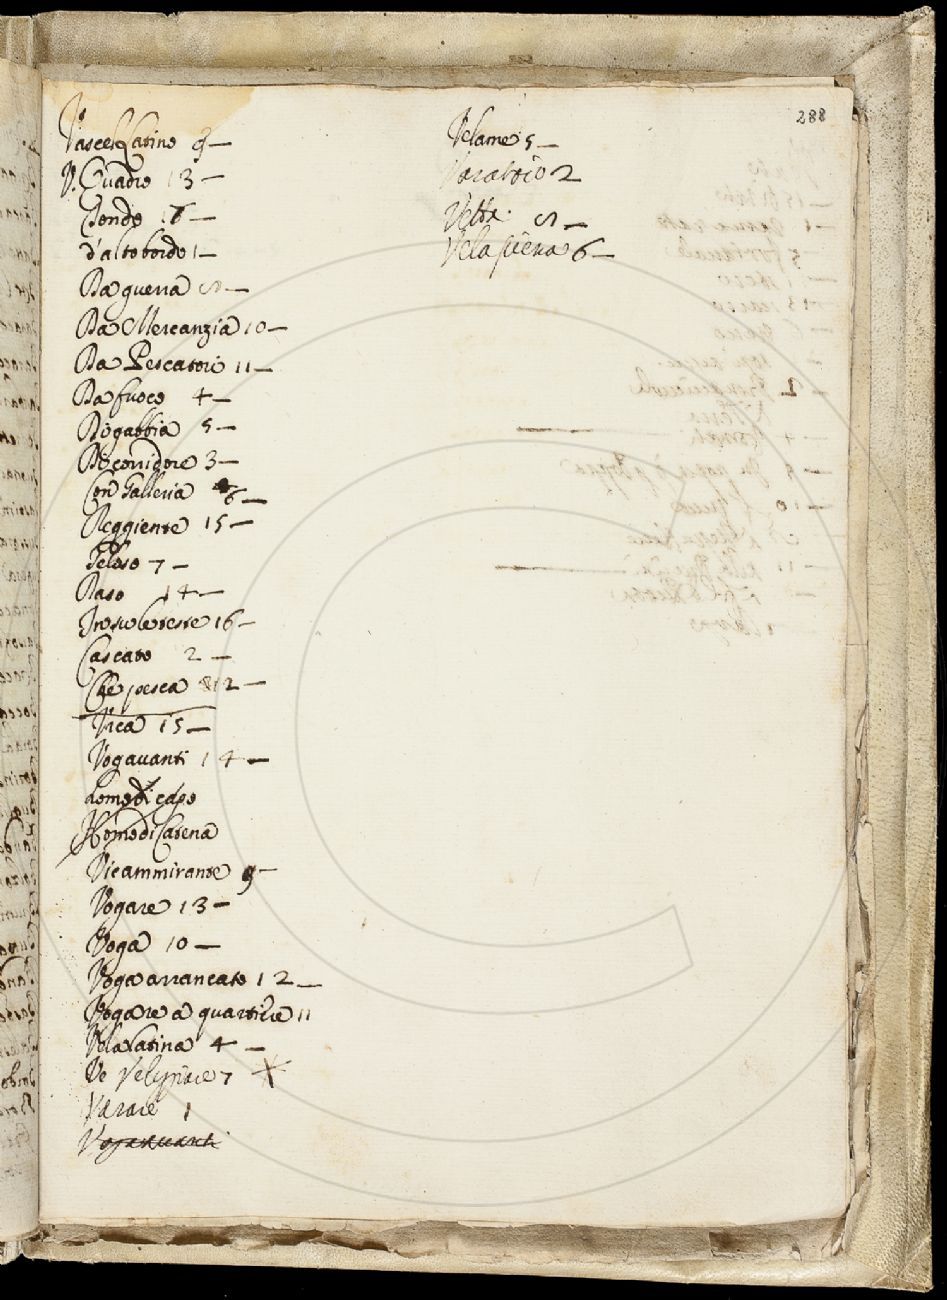 288
Vascel Latino 9 —
V. Cuadro 13 —
Tondo 16 —
d'alto bordo 1 —
Da guerra 8 —
Da Mercanzia 10 —
Da Pescatori 11 —
Da fuoco 4 —
Di gabbia 5 —
Di corridore 3 —
Con Galleria 6 —
Reggiente 15 —
Geloso 7 —
Raso 14 —
16 —
Cascato 2 —
Che pesca 12 —
Vica 15 —
Vogavanti 14 —
Homo di capo
Homo di Catena
Vicammirante 9 —
Vogare 13 —
Voga 10 —
Voga arrancato 12 —
Vogare a quartiere 11
Vela Latina 4 —
Ve 7
Varare 1
Vogavanti
Velame 5 —
2
Vetta 8 —
Vela 6 —